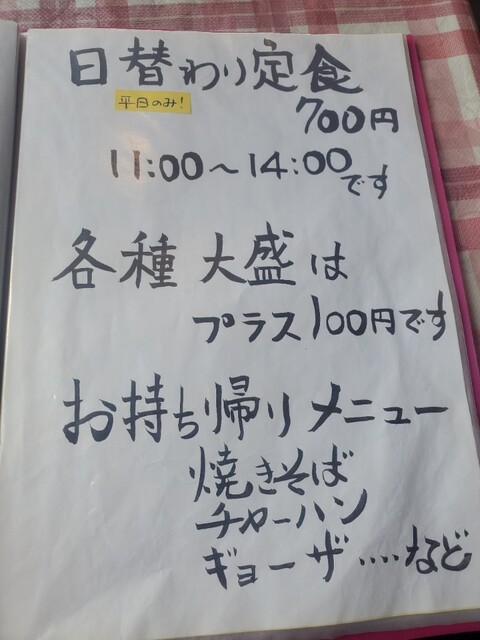 日替わり定食
平日のみ!
700円
11:00～14:00
です
各種 大盛は
プラス100円です
お持ち帰りメニュー
焼きそば
チャーハン
ギョーザ....など